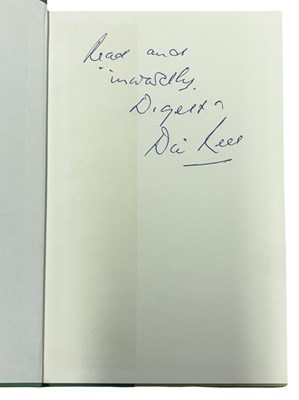 Read and
inwardly
Digest
Dai Rees